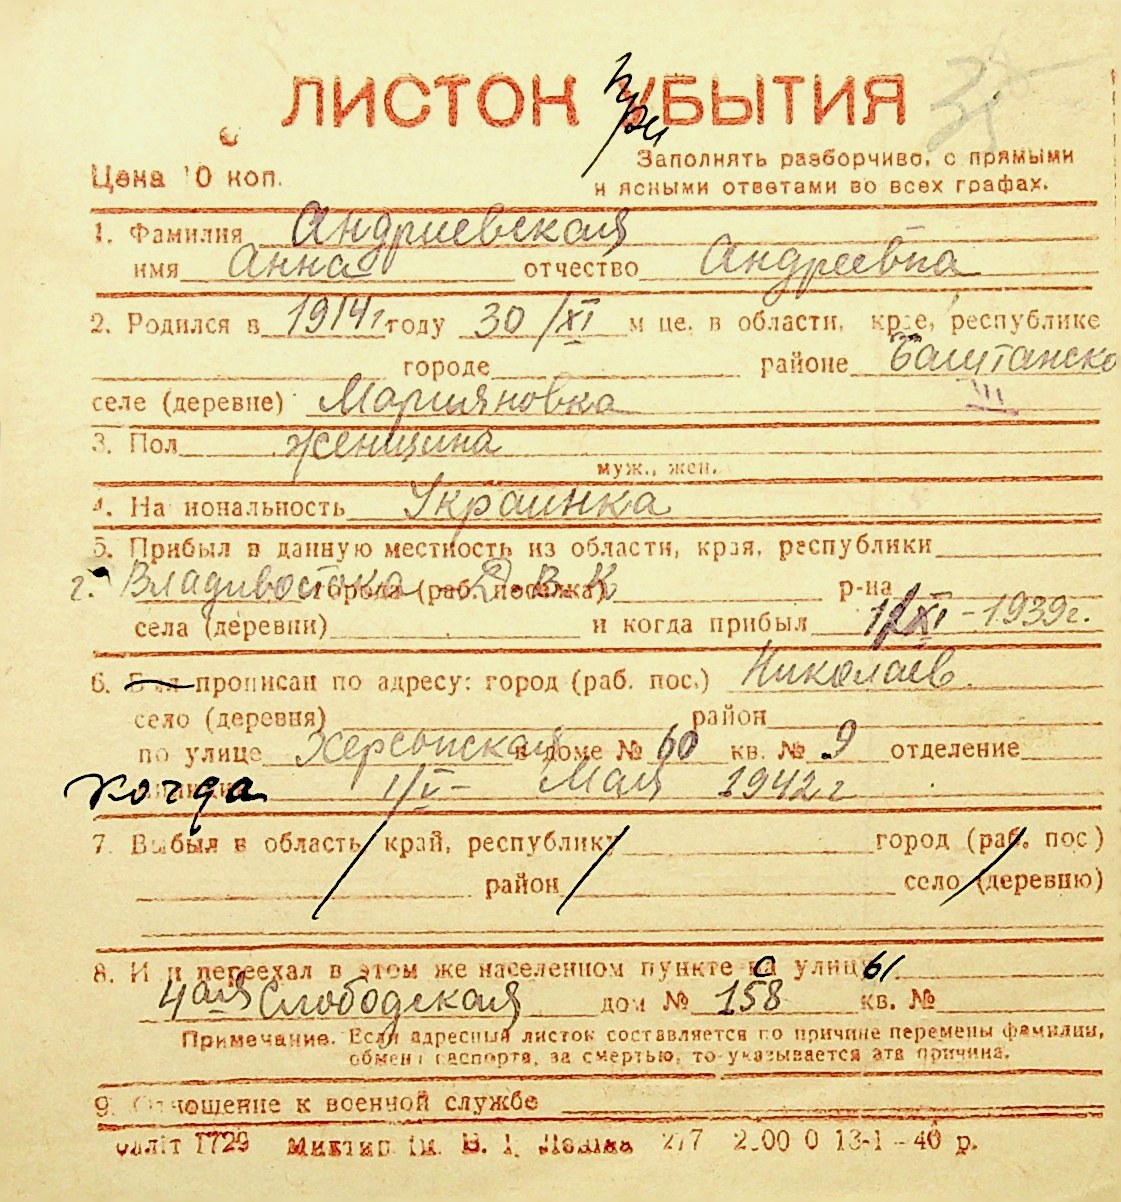 ЛИСТОК УБЫТИЯ
при
Цена 10 коп.
Заполнять разборчиво, с прямыми
и ясными ответами во всех графах.
1. Фамилия Андриевская
имя Анна отчество Андреевна
2. Родился в 1914 г. году 30/XI м-це, в области, крае, республике
городе районе Баштанско
селе (деревне) Марияновка III
3. Пол женщина
муж., жен.
4. Национальность Украинка
5. Прибыл в данную местность из области, края, республики
г. Владивостока Д.В.К. города (раб. поселка) р-на
села (деревни) и когда прибыл 1/XI – 1939 г.
6. Был прописан по адресу: город (раб. пос.) Николаев
село (деревня) район
по улице Херсонская в доме № 60 кв. № 9 отделение
когда 1/V – Мая 1942 г
7. Выбыл в область, край, республику город (раб. пос.)
район село (деревню)
8. Или переехал в этом же населенном пункте с улицы
4ая Слободская дом № 158 кв. №
Примечание. Если адресный листок составляется по причине перемены фамилии,
обмена паспорта, за смертью, то указывается эта причина.
9. Отношение к военной службе
1729 им. В. І. 277 13-1-40 р.